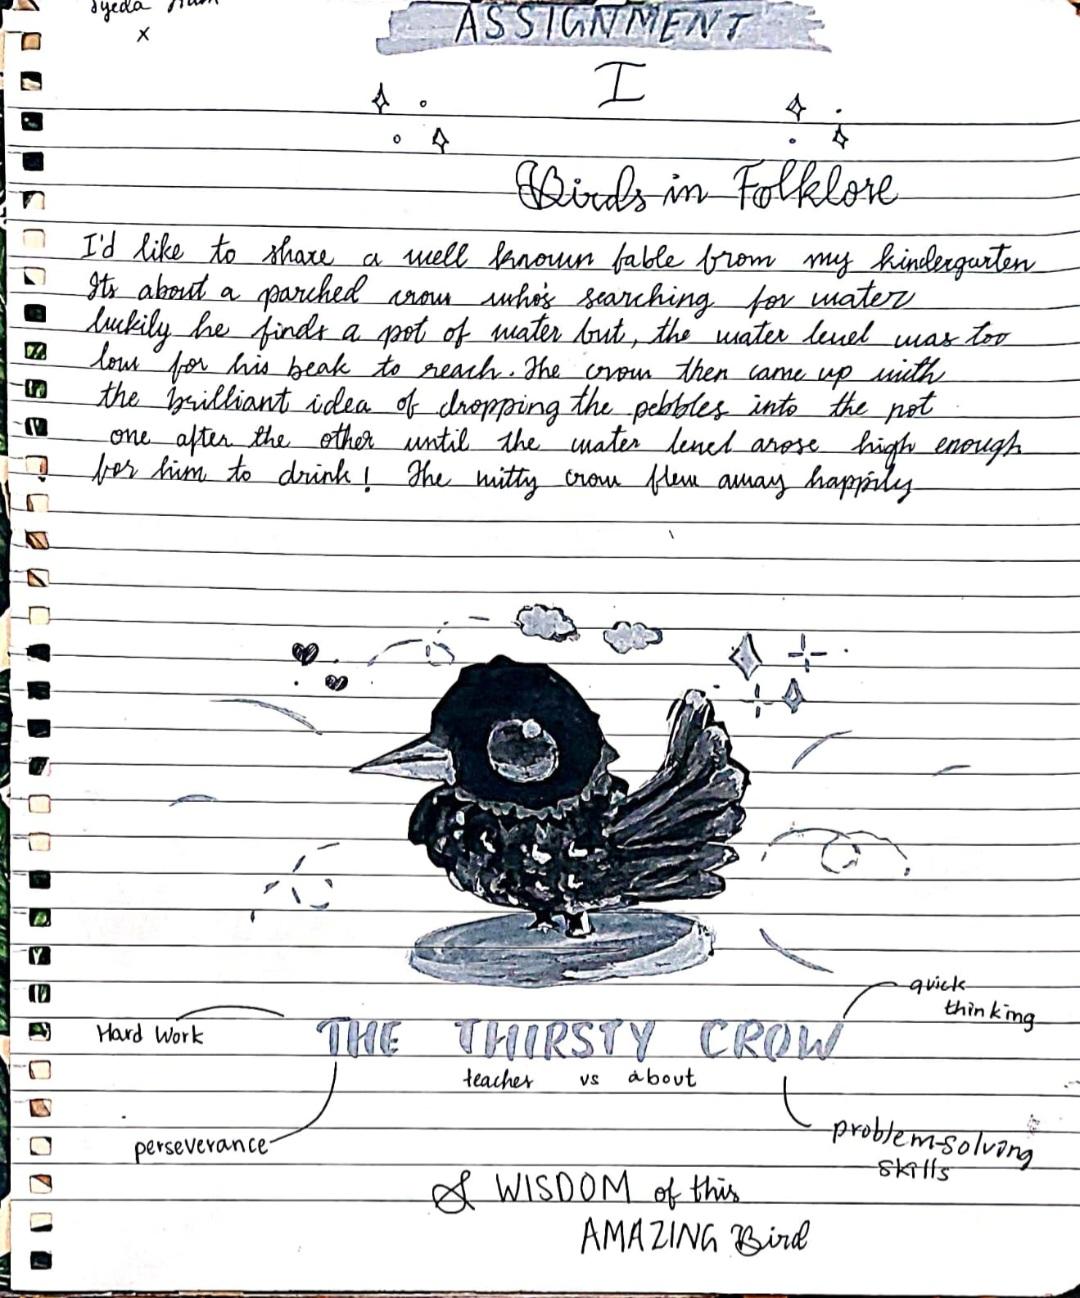 Syeda
x
ASSIGNMENT
I
Birds in Folklore
I'd like to share a well known fable from my kindergarten
Its about a parched crow who's searching for water
luckily he finds a pot of water but, the water level was too
low for his beak to reach. The crow then came up with
the brilliant idea of dropping the pebbles into the pot
one after the other until the water level arose high enough
for him to drink! The witty crow flew away happily
quick
thinking
Hard Work
THE THIRSTY CROW
teaches us about
perseverance
problem-solving
skills
& WISDOM of this
AMAZING Bird